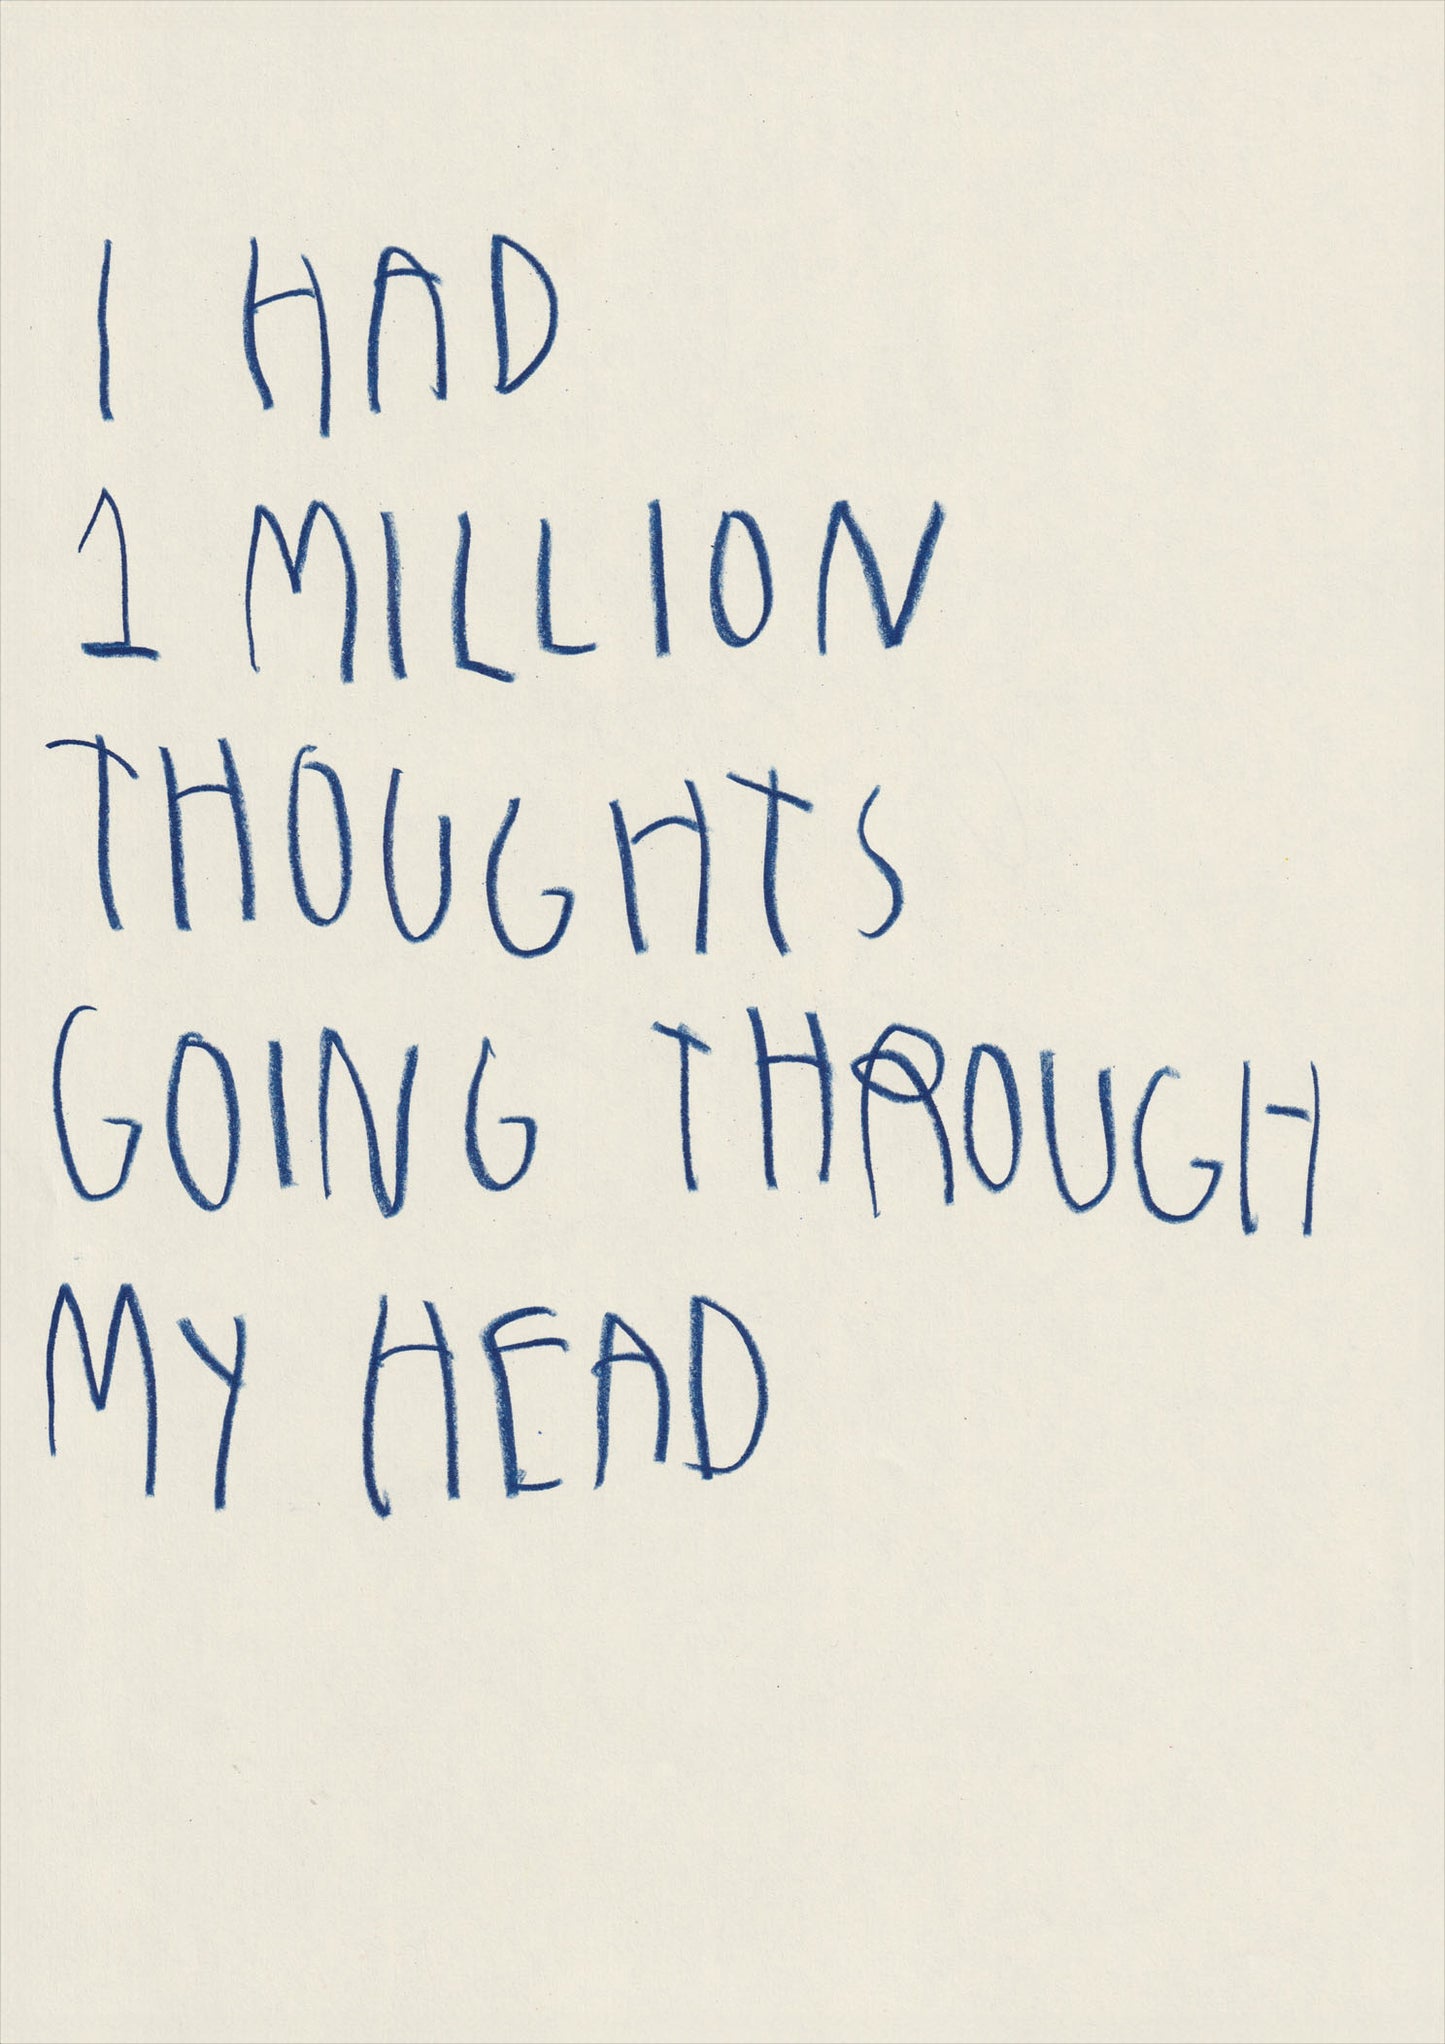 I HAD
1 MILLION
THOUGHTS
GOING THROUGH
MY HEAD